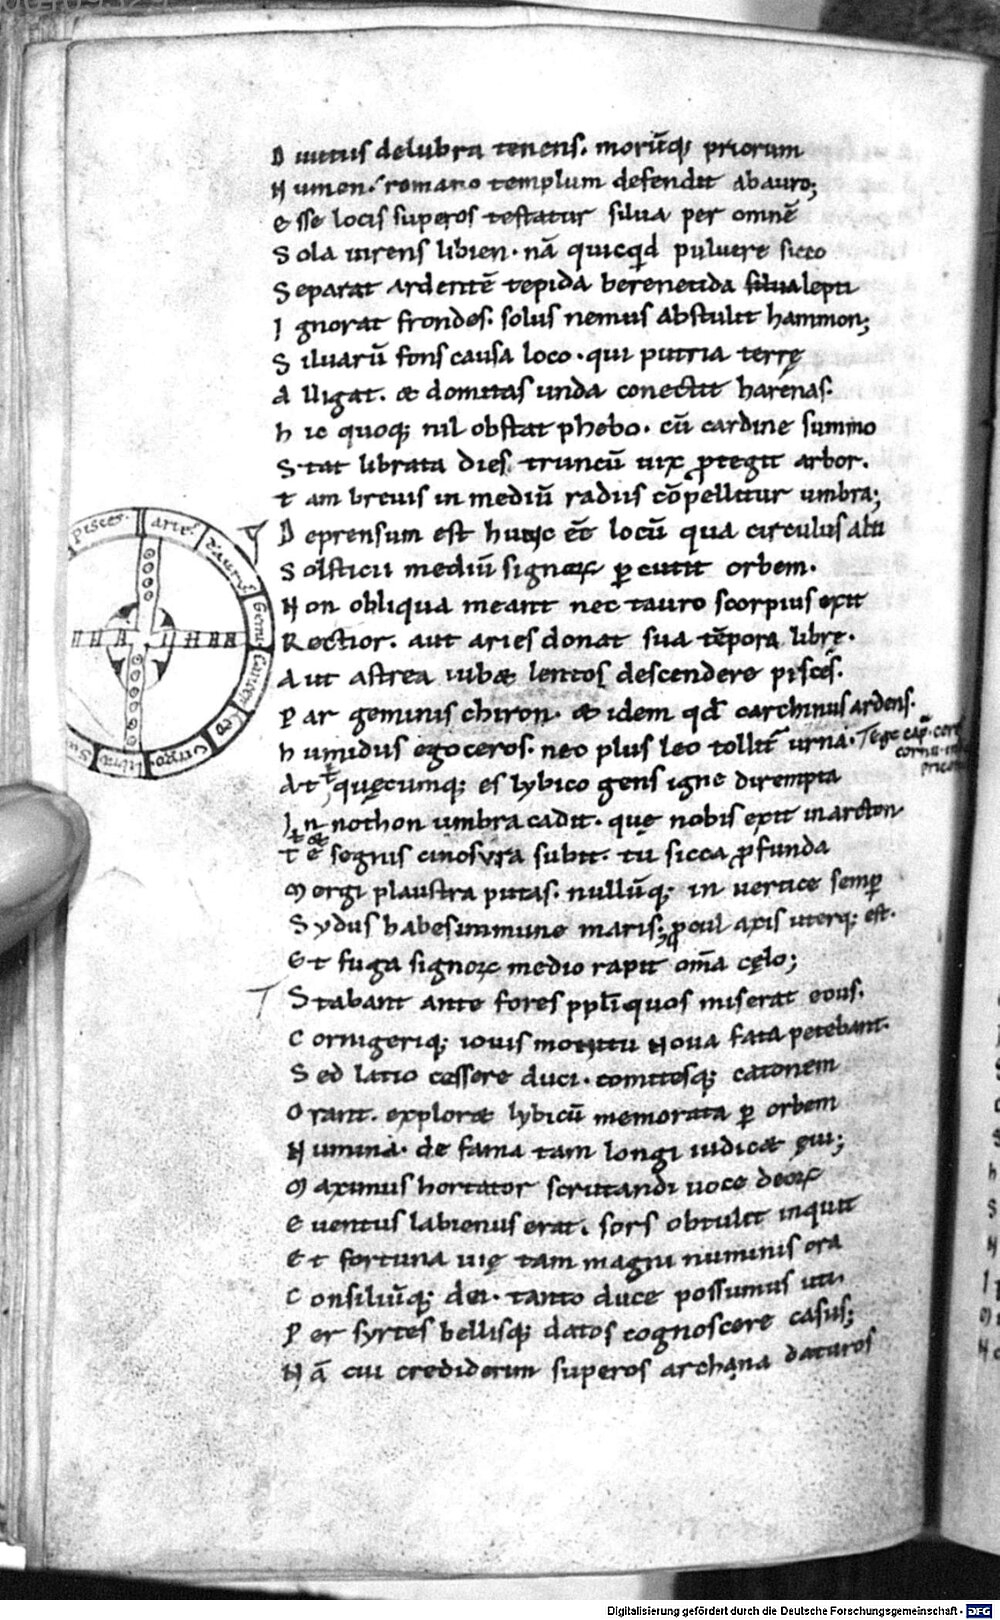 D iuitus delubra tenens. morūq; priorum
N umen. romano templum defendit abauro;
e sse locis superos testatur silua per omnē
S ola uirens libien. nā quicqd pulvere sicco
S eparat ardentē tepida berenetida silualepti
I gnorat frondes. solus nemus abstulit hammon;
S iluarū fons causa loco. qui putria terrę
A lligat. & domitas unda conectit harenas.
h ic quoq; nil obstat phebo. cū cardine summo
S tat librata dies. truncū uix ptegit arbor.
t am breuis in mediū radiis cōpellitur umbra;
D eprensum est hunc eē locū qua circulus alti
S olsticii mediū signorꝝ pcutit orbem.
N on obliqua meant nec tauro scorpius exit
R ectior. aut aries donat sua tēpora librę.
A ut astrea iub& lentos descendere pisces.
P ar geminis chiron. & idem qd carchinus ardens.
h umidus egoceros. nec plus leo tollit urna. Tege cap. cert
cornu
prico
At t quęcumq; es lybico gens igne dirempta
I n nothon umbra cadit. que nobis exit inarcton
t e segnis cinosura subit. tu sicca pfunda
M ergi plaustra putas. nullūq; in uertice semp
S ydus habes immune maris; pcul axis uterq; est.
E t fuga signorꝝ medio rapit oma cęlo;
S tabant ante fores ppli quos miserat eous.
C ornigeriq; iouis monitu noua fata petebant.
S ed latio cessere duci. comitesq; catonem
O rant. explor& lybicū memorata p orbem
N umina. de fama tam longi iudic& ęui;
M aximus hortator scrutandi uoce deorꝝ
e uentus labienus erat. sors obtulit inquit
E t fortuna uię tam magni numinis ora
C onsiliūq; dei. tanto duce possumus uti
P er syrtes bellisq; datos cognoscere casus;
N ā cui crediderim superos archana daturos
Pisces.
aries
taurꝰ
Gemi
Cancer
leo
Uirgo
libra